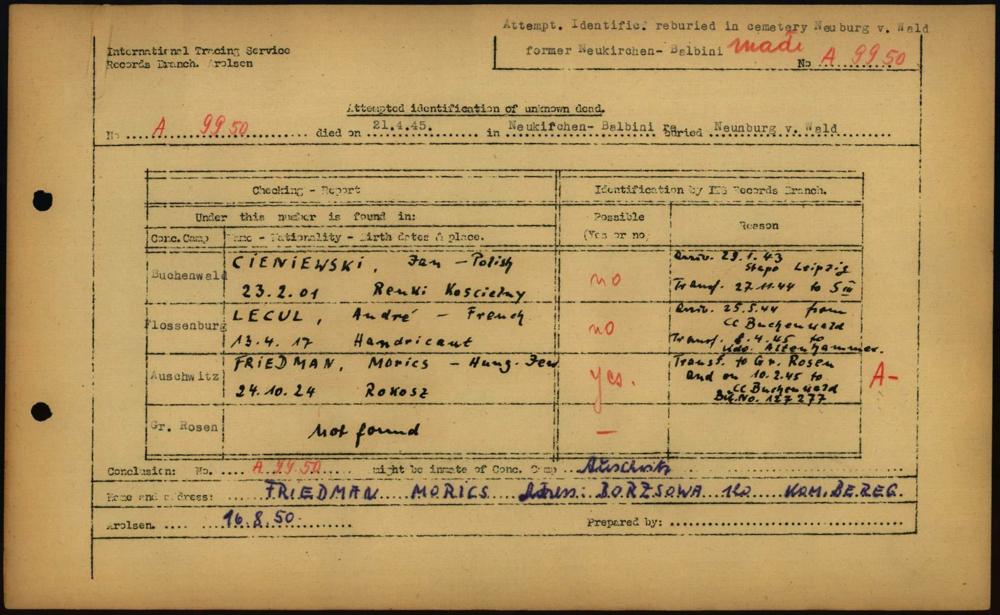 Attempt. Identific. reburied in cemetery Neuburg v. Wald
former Neukirchen- Balbini made
No A 9950
International Tracing Service
Records Branch. Arolsen
Attempted identification of unknown dead.
No A 9950 died on 21.4.45. in Neukirchen- Balbini re buried Neunburg v. Wald
Checking - Report
Identification by ITS Records Branch.
Under this number is found in:
Possible
(Yes or no)
Reason
Conc. Camp
Name - Nationality - Birth dates & place.
Buchenwald
CIENIEWSKI, Jan - Polish
23.2.01 Koscielny
no
Arriv. 29.1.43
Stapo Leipzig
Transf. 27.11.44 to S III
Flossenburg
LECUL, André - French
13.4.17 Handricourt
no
Arriv. 25.5.44 from
CC Buchenwald
Transf. 8.4.45 to
Kdo. Altenhammer.
Auschwitz
FRIEDMAN, Morics - Hung. Jew
24.10.24 Rokosz
yes.
Transf. to Gr. Rosen
and on 10.2.45 to
CC Buchenwald
No. 127277
A-
Gr. Rosen
Not found
—
Conclusion: No. A 9950 might be inmate of Conc. Camp Auschwitz
Name and address: FRIEDMAN MORICS Adress: BORZSOWA 120 KOM. BEREG.
Arolsen. 16.8.50. Prepared by: